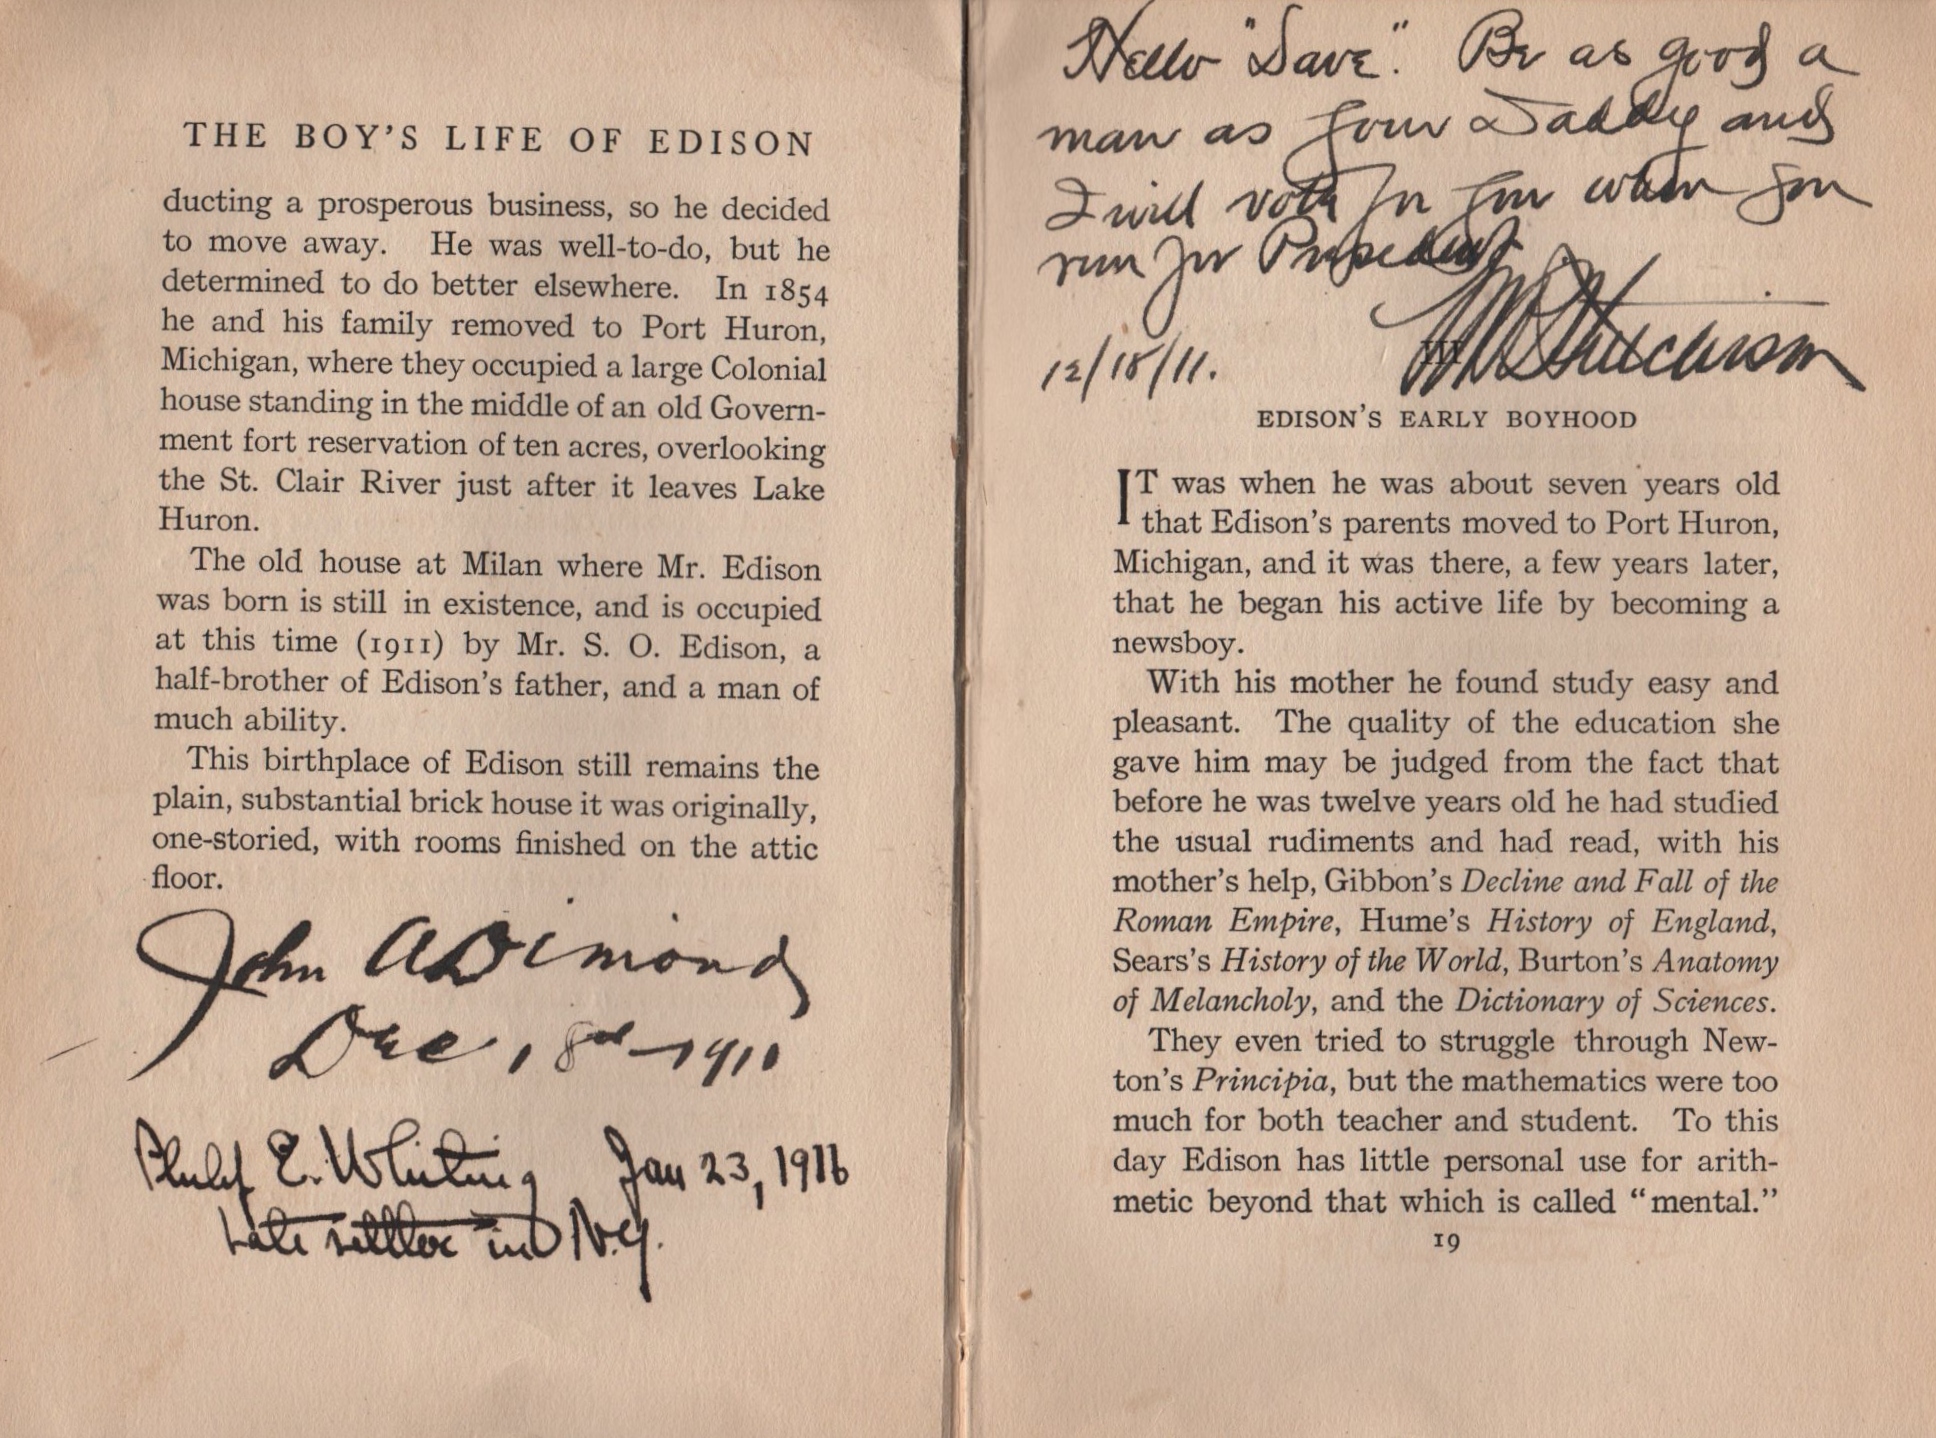 THE BOY'S LIFE OF EDISON
ducting a prosperous business, so he decided
to move away. He was well-to-do, but he
determined to do better elsewhere. In 1854
he and his family removed to Port Huron,
Michigan, where they occupied a large Colonial
house standing in the middle of an old Govern-
ment fort reservation of ten acres, overlooking
the St. Clair River just after it leaves Lake
Huron.
The old house at Milan where Mr. Edison
was born is still in existence, and is occupied
at this time (1911) by Mr. S. O. Edison, a
half-brother of Edison's father, and a man of
much ability.
This birthplace of Edison still remains the
plain, substantial brick house it was originally,
one-storied, with rooms finished on the attic
floor.
John A Dimond
Dec, 18 1911
Philip E. Whiting Jan 23, 1916
Late settler in N.Y.
Hello "Dave". Be as good a
man as your Daddy and
I will vote for you when you
run for President
Hutchison
12/18/11.
III
EDISON'S EARLY BOYHOOD
IT was when he was about seven years old
that Edison's parents moved to Port Huron,
Michigan, and it was there, a few years later,
that he began his active life by becoming a
newsboy.
With his mother he found study easy and
pleasant. The quality of the education she
gave him may be judged from the fact that
before he was twelve years old he had studied
the usual rudiments and had read, with his
mother's help, Gibbon's Decline and Fall of the
Roman Empire, Hume's History of England,
Sears's History of the World, Burton's Anatomy
of Melancholy, and the Dictionary of Sciences.
They even tried to struggle through New-
ton's Principia, but the mathematics were too
much for both teacher and student. To this
day Edison has little personal use for arith-
metic beyond that which is called "mental."
19